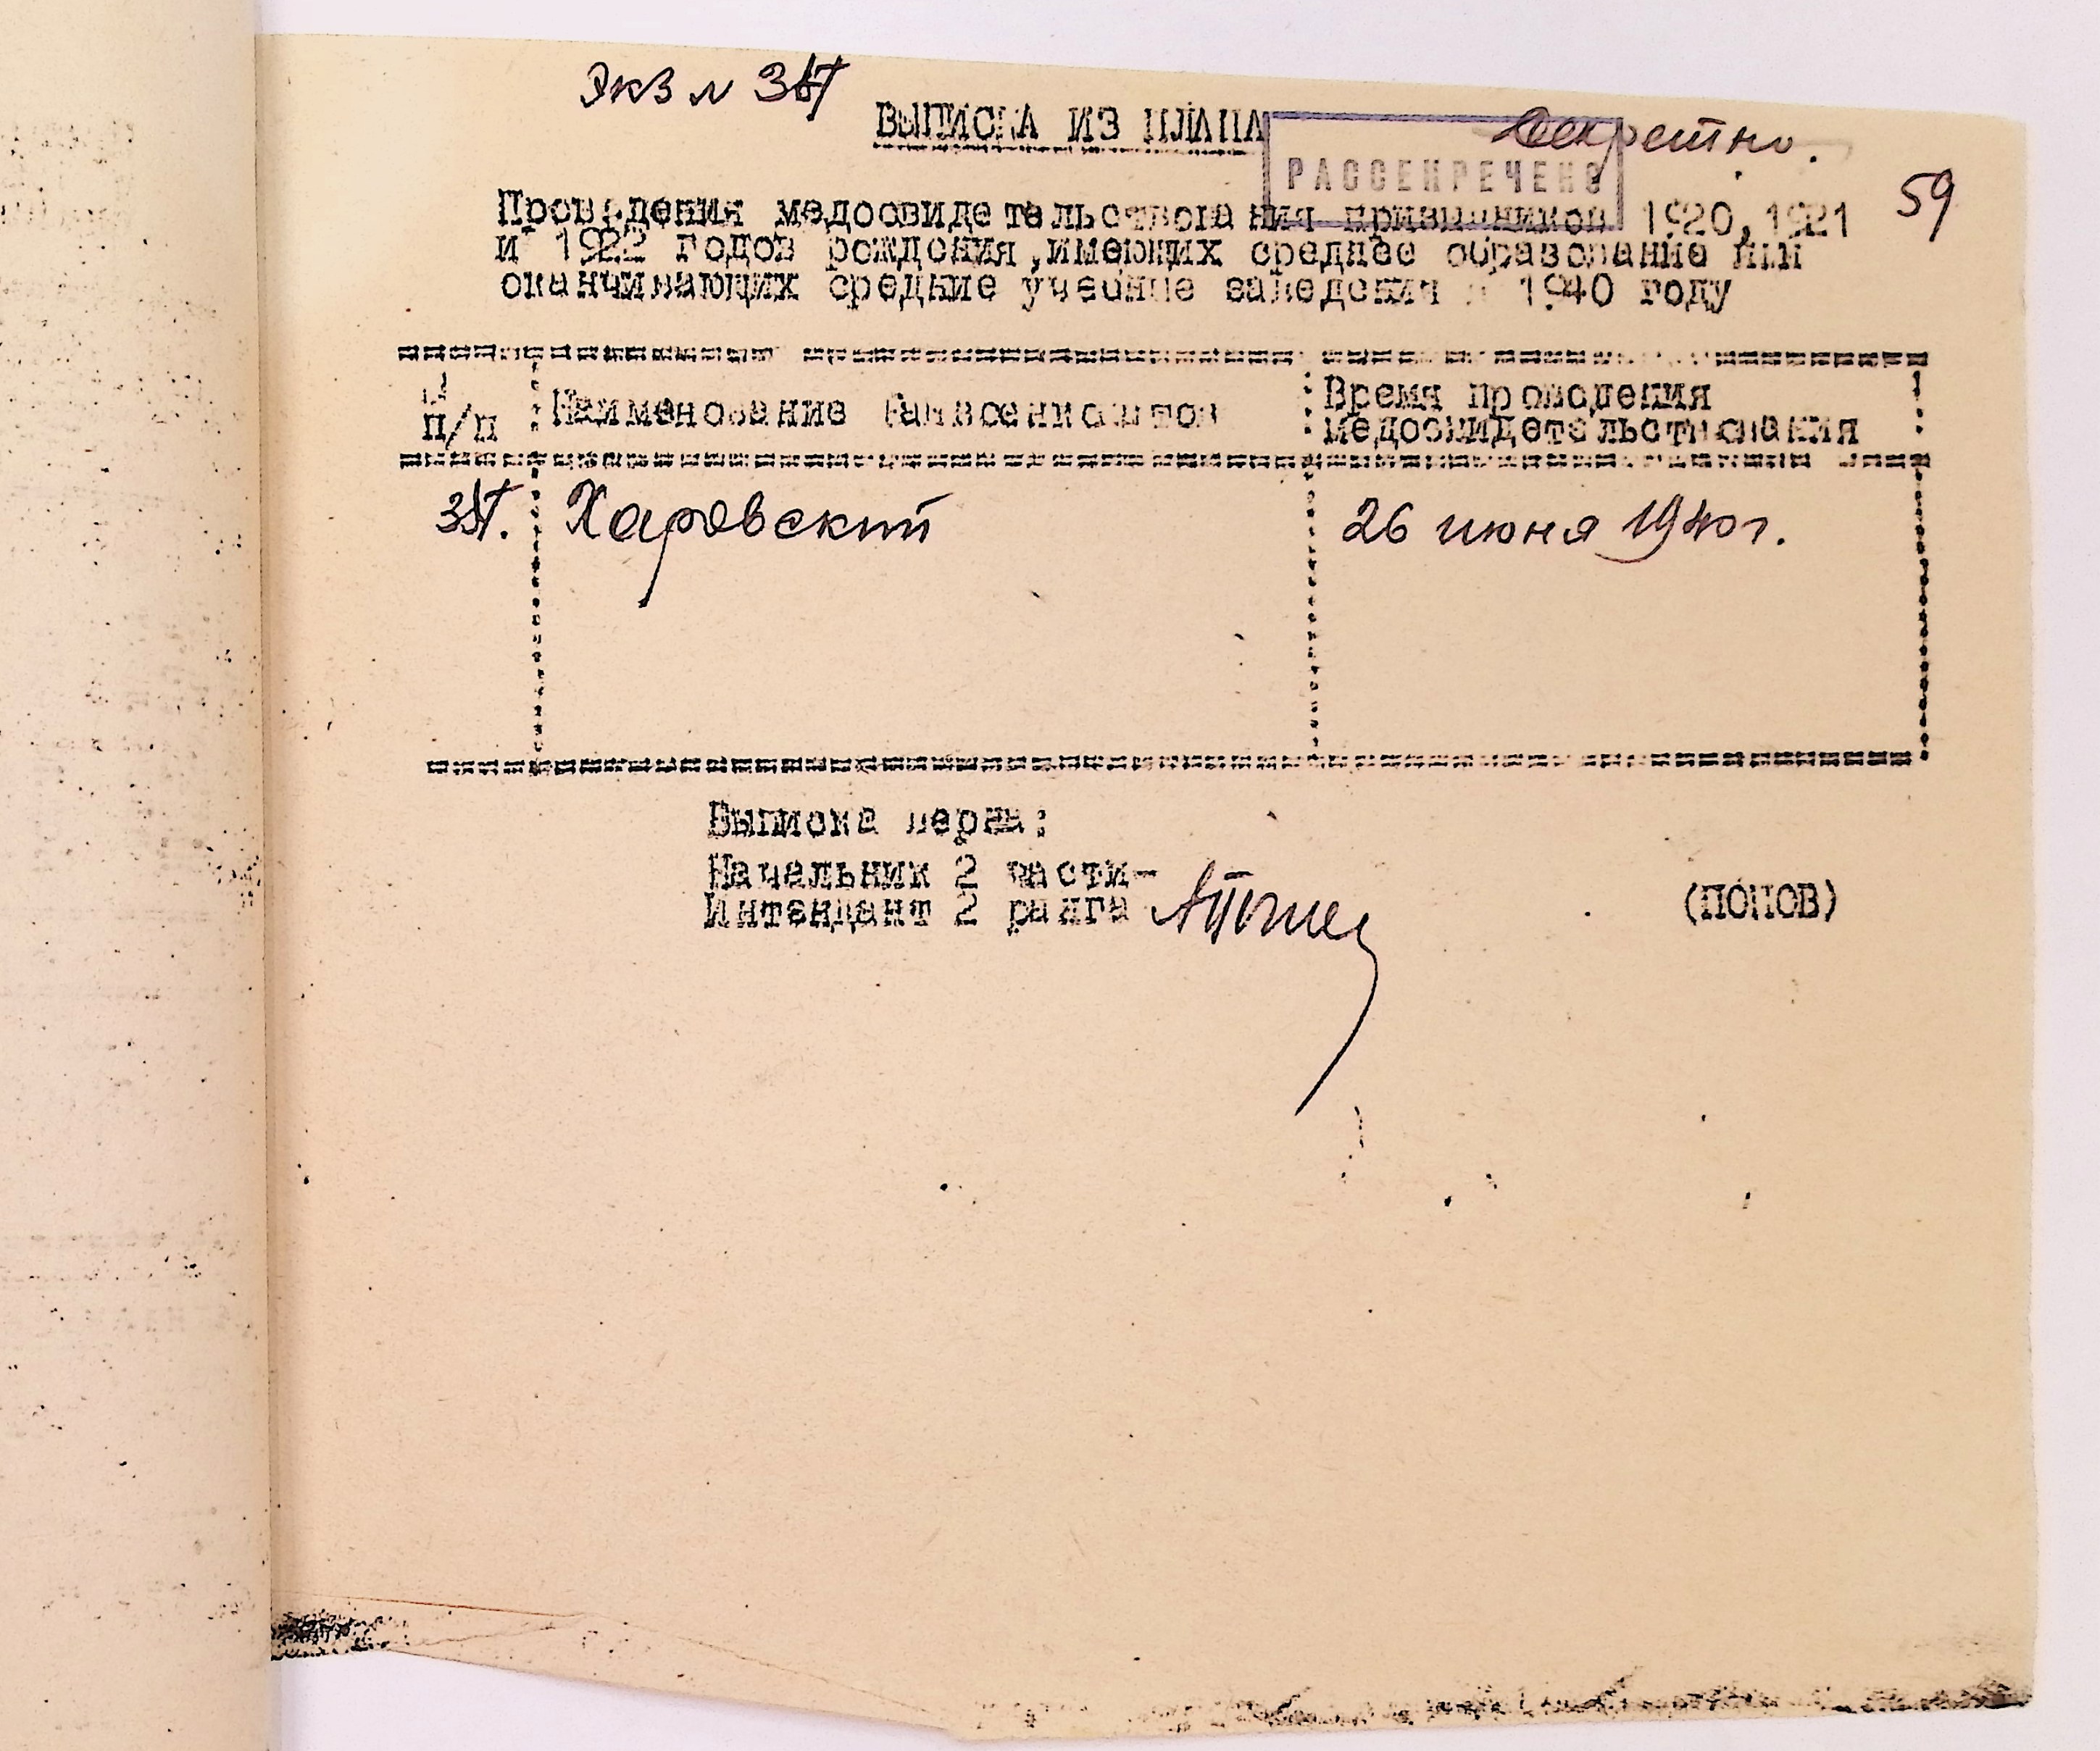 Экз №
ВЫПИСКА ИЗ ПЛАНА
Секретно.
РАССЕКРЕЧЕНО
59
Проведения медосвидетельствования призывников 1920, 1921
и 1922 годов рождения, имеющих среднее образование или
оканчивающих средние учебные заведения в 1940 году
№
п/п
Наименование Райвоенкоматов
Время проведения
медосвидетельствования
Харовский
26 июня 1940 г.
Выписка верна:
Начальник 2 части-
Интендант 2 ранга
(ПОПОВ)